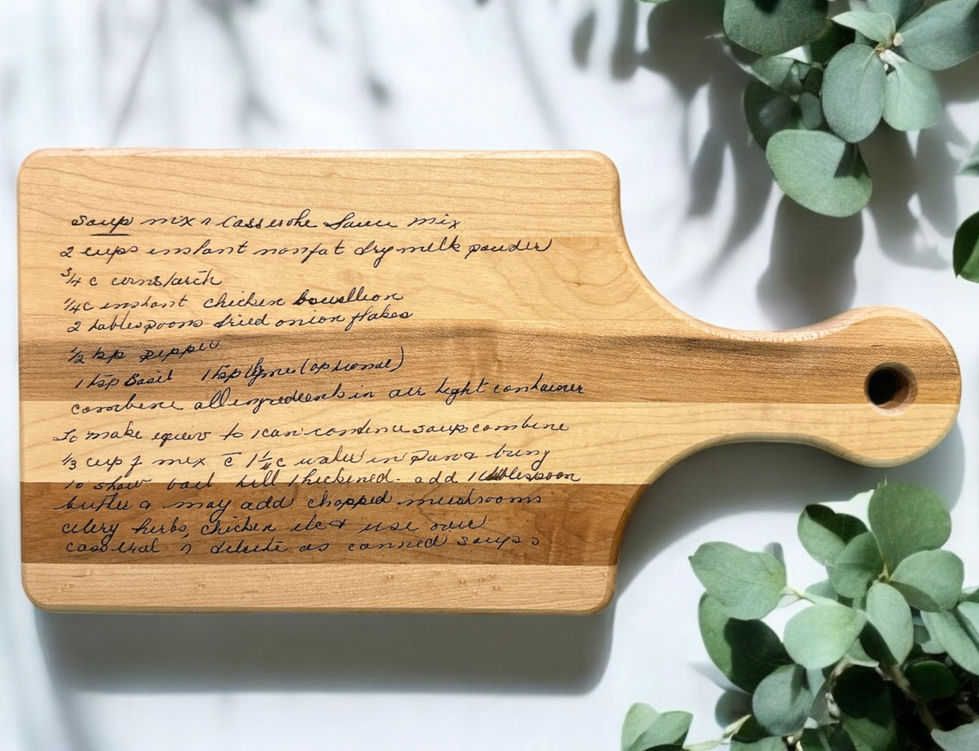 Soup mix n Casserole Sauce mix
2 cups instant nonfat dry milk powder
3/4 c cornstarch
1/4 c instant chicken bouillion
2 tablespoons dried onion flakes
1/2 tsp pepper
1 tsp Basil 1 tsp thyme (optional)
combine all ingredients in air tight container
To make equiv to 1 can condensed soup combine
1/3 cup of mix c̄ 1 1/4 c water in pan & bring
to slow boil till thickened. add 1 tablespoon
butter & may add chopped mushrooms
celery herbs, chicken etc & use over
casseral n dilute as canned soups